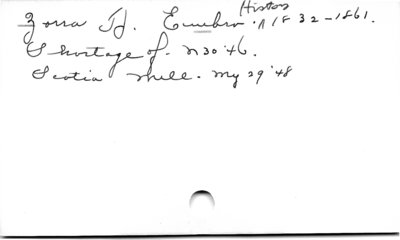 Zorra Tp. Embro History 1832-1861.
Shortage of. N30'46.
Scotia Mill. My 29'48